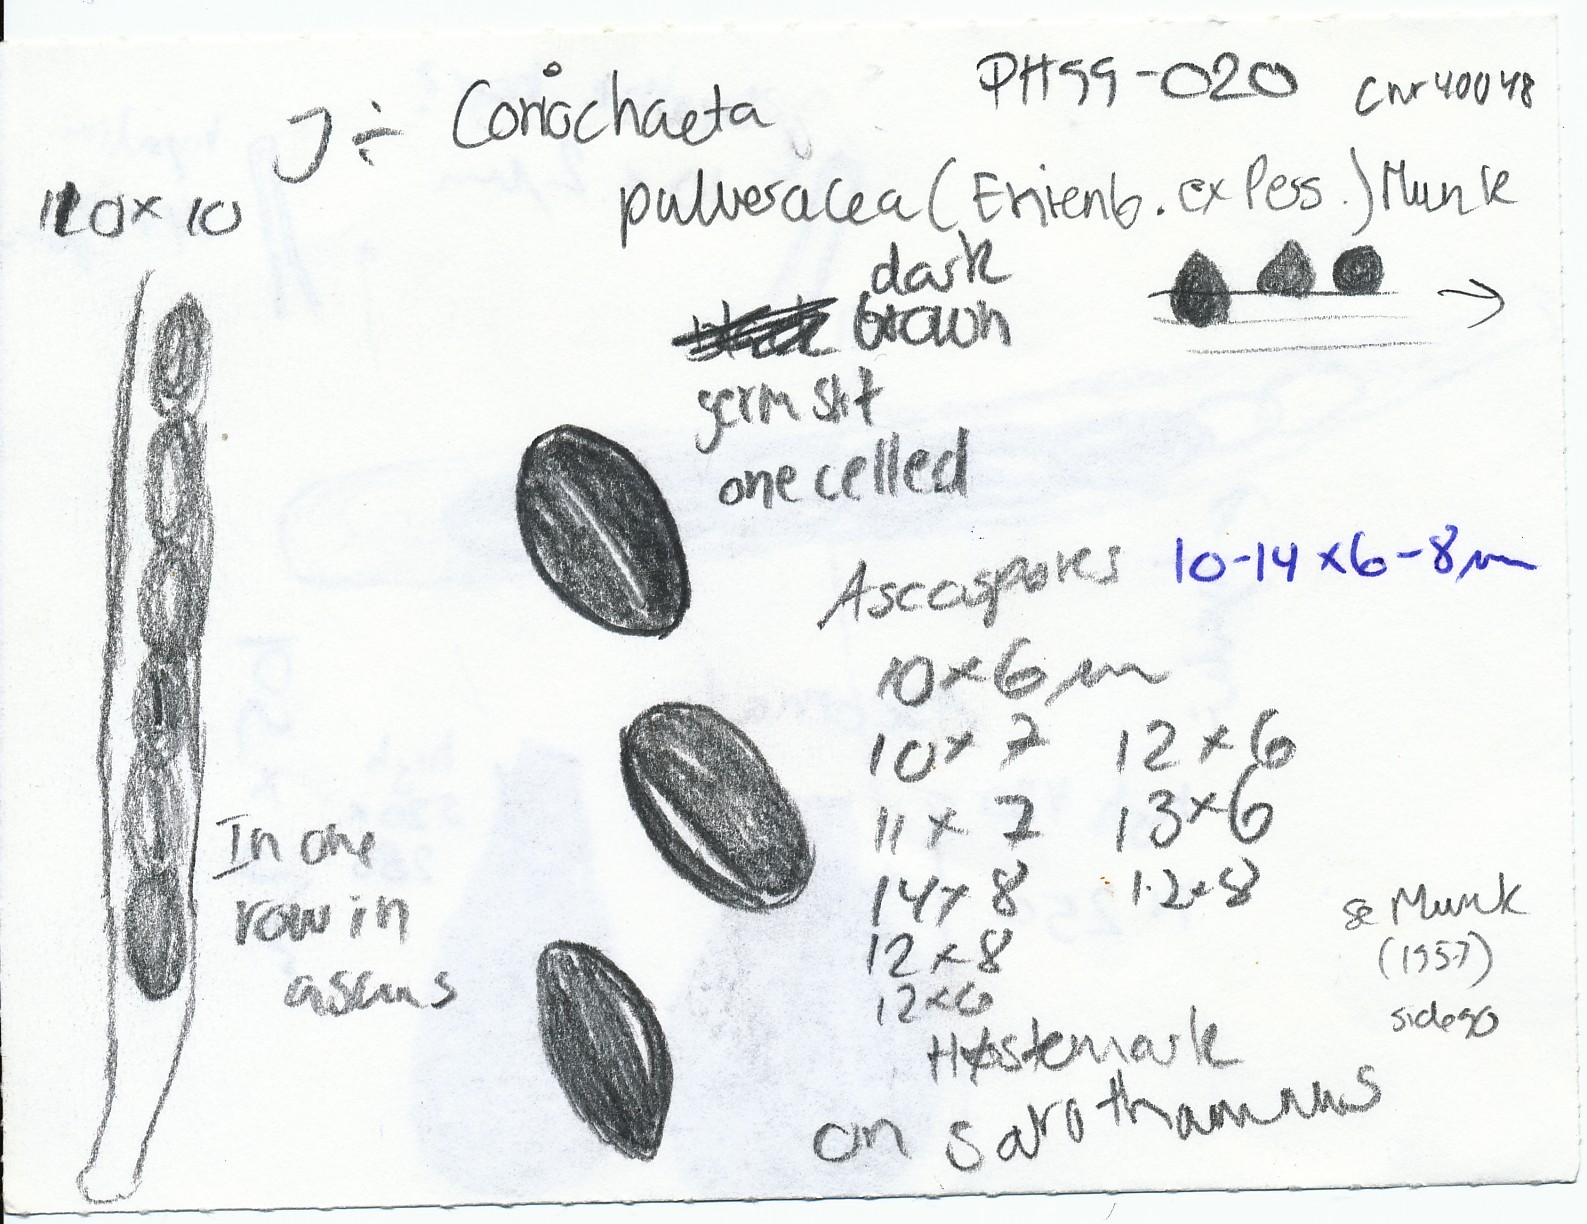 PH99-020 cnr40048
J ÷ Coniochaeta
pulveracea (Ehrenb. ex Pers.) Munk
120 × 10
dark
brown
germ slit
one celled
Ascospores 10-14 × 6-8 µm
10 × 6 µm
10 × 7 12 × 6
11 × 7 13 × 6
14 × 8 12 × 8
12 × 8
12 × 6
In one
row in
ascus
se Munk
(1957)
side 90
on Sarothamnus